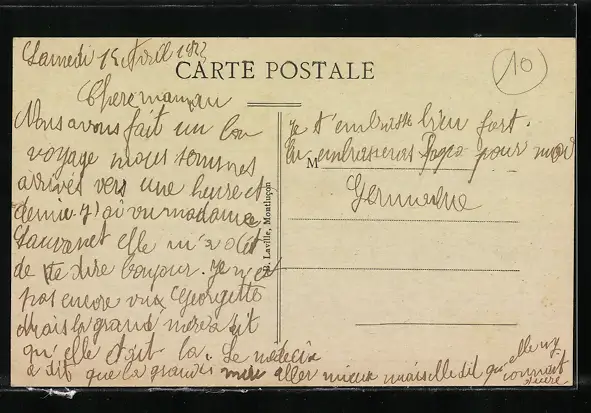 Samedi 15 Avril 1923
CARTE POSTALE
10
Chere maman
Nous avons fait un bon
voyage nous sommes
arrivés vers une heure et
demie. J'ai vu madame
Sauvanet elle m'a dit
de te dire bonjour. Je n'ai
pas encore vux Georgette
Mais la grand mère a dit
qu'elle était la. Le médecin
a dit que la grand mere aller mieux mais elle dit que elle ny
connait
Laville, Montluçon
Je t'embrasse bien fort.
Tu embrasseras Papa pour moi
M
Germaine